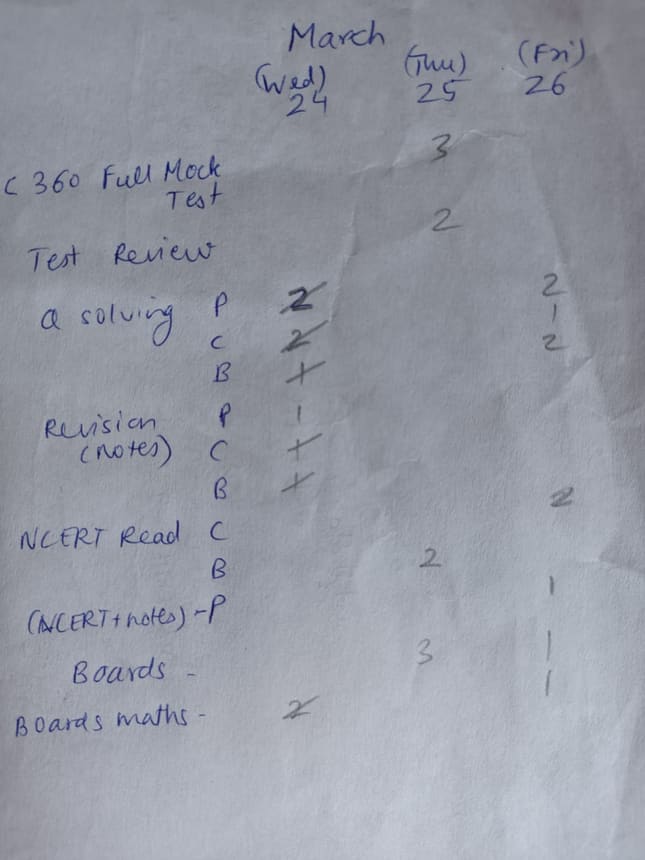 March
(Wed) (Thu) (Fri)
24 25 26
C 360 Full Mock 3
Test
Test Review 2
Q solving P 2 2
C 2 1
B 2
Revision P 1
(notes) C
B
NCERT Read C 2
B 2
(NCERT + notes) - P 1
Boards - 3 1
Boards maths - 2 1